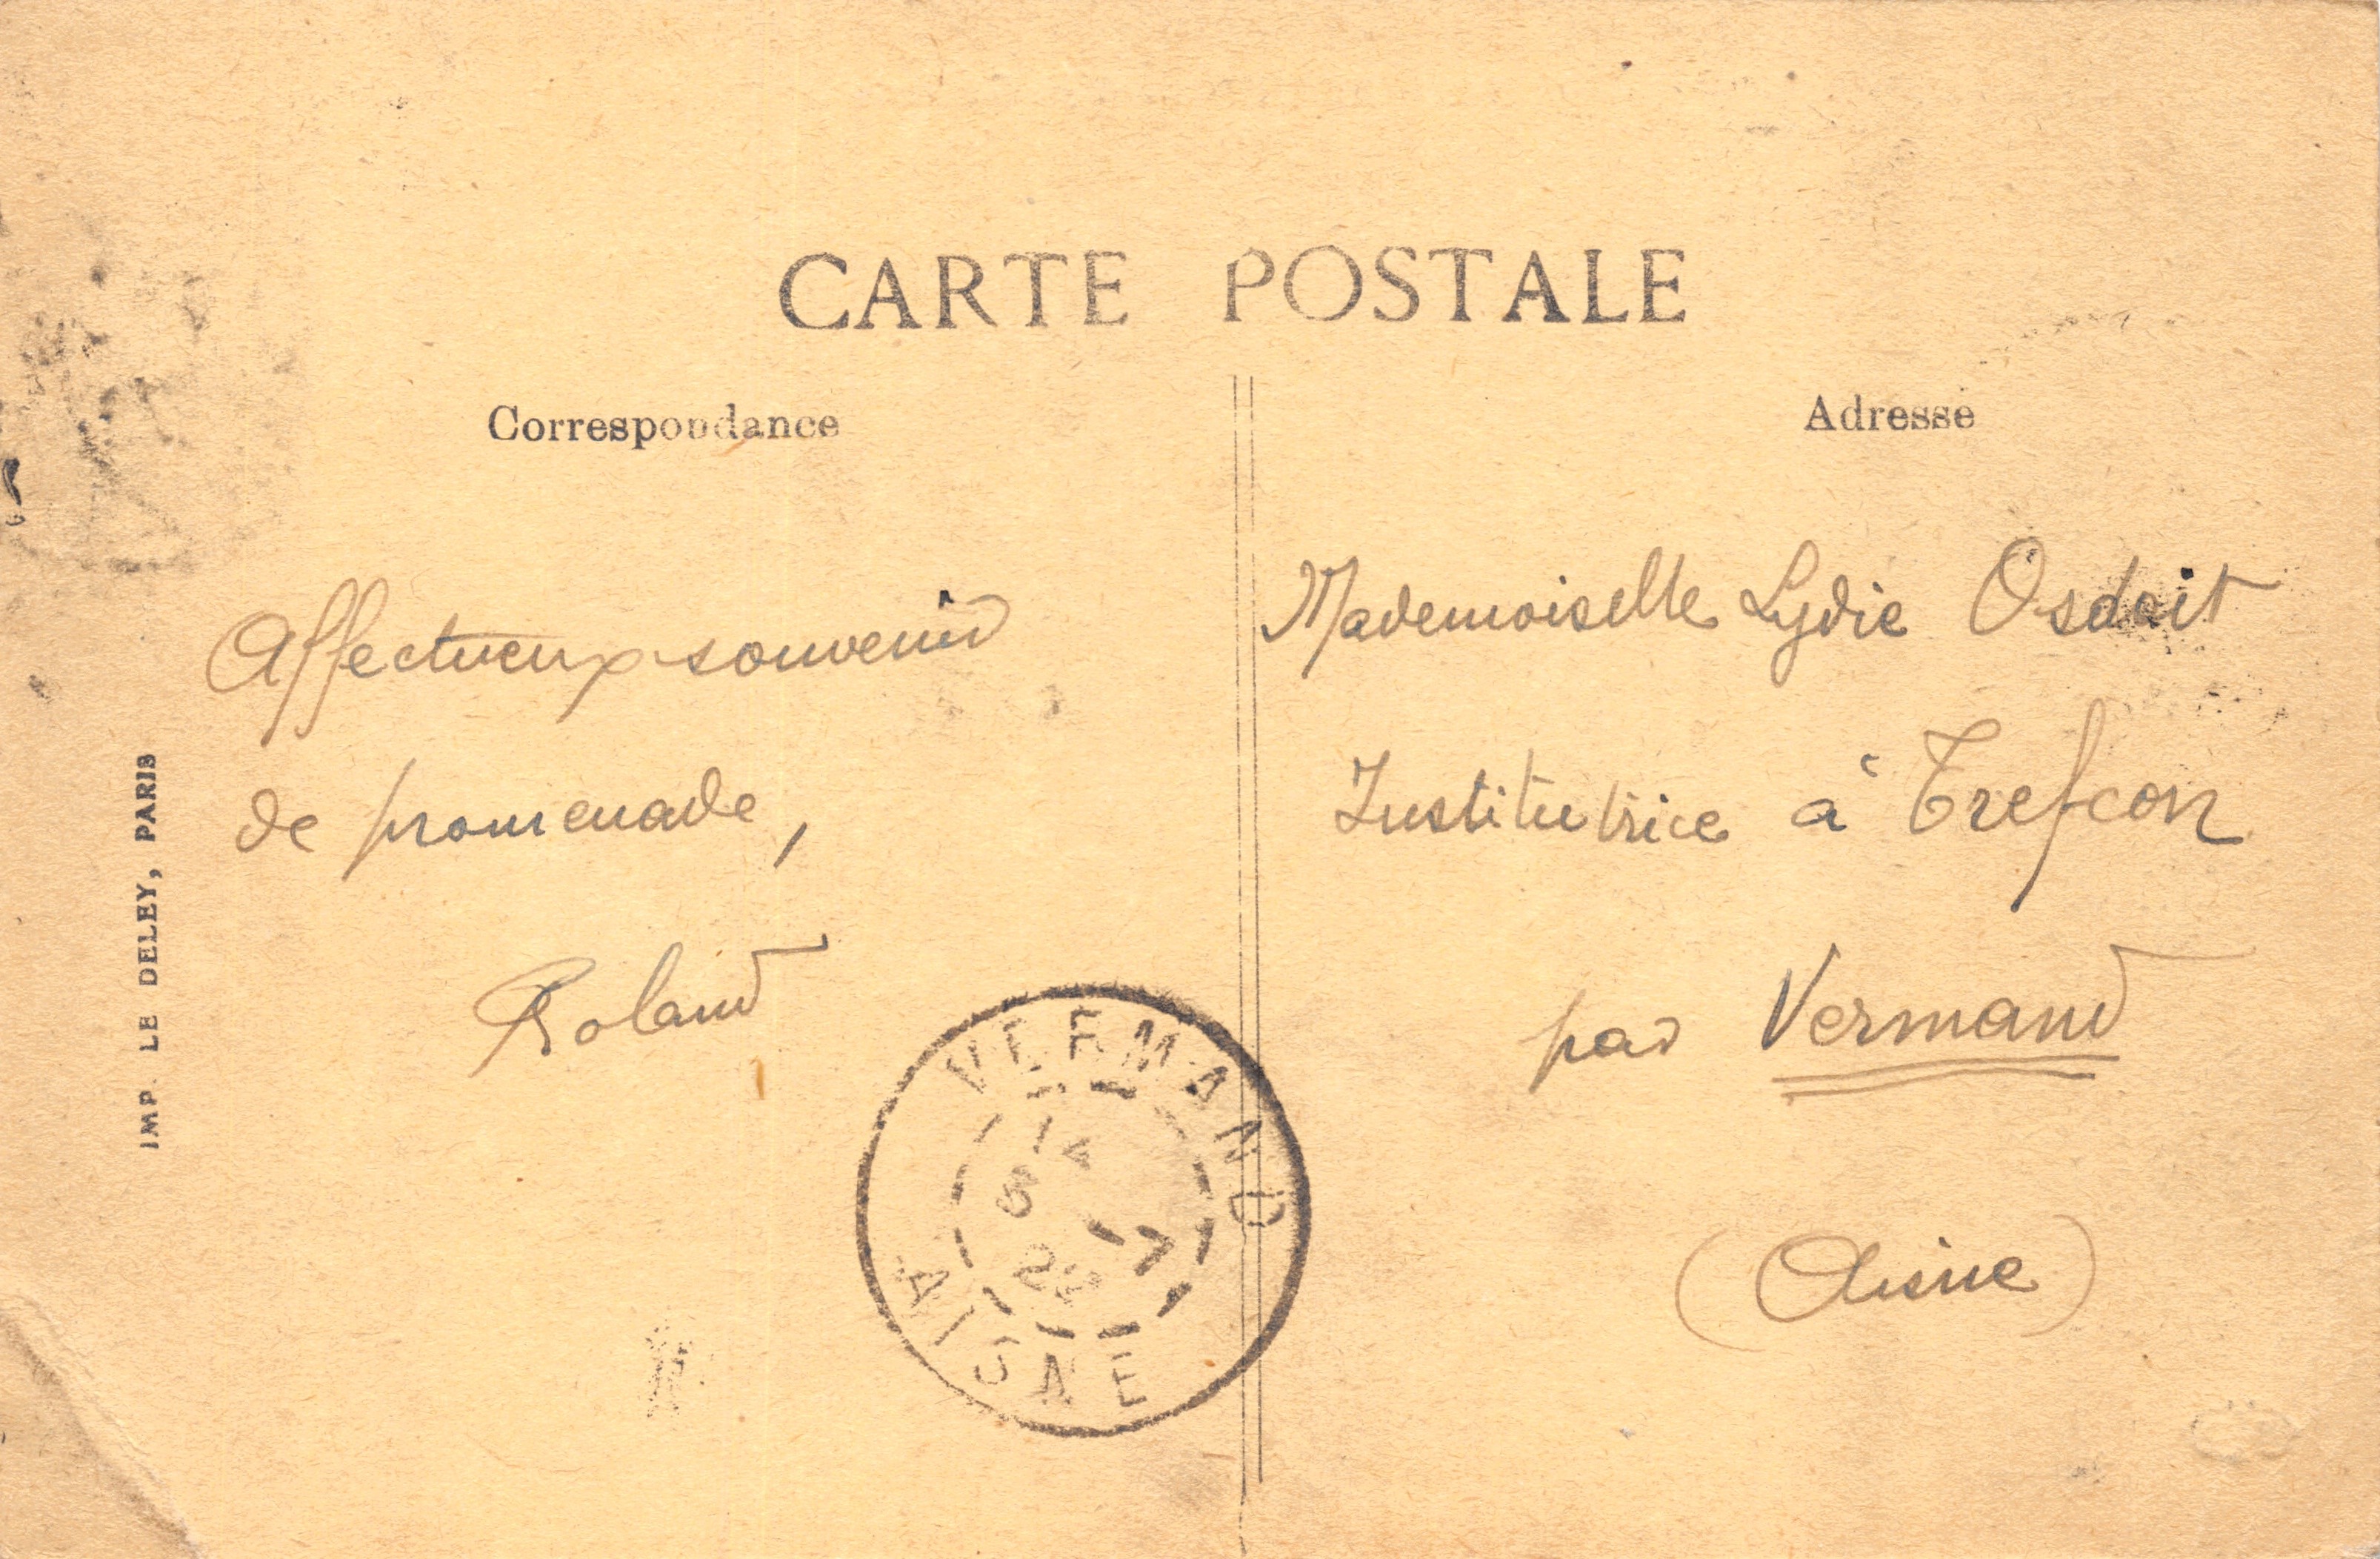 CARTE POSTALE
Correspondance
Adresse
Affectueux souvenir
de promenade,
Roland
Mademoiselle Lydie Osdoit
Institutrice à Trefcon
par Vermand
(Aisne)
IMP. LE DELEY, PARIS
VERMAND
AISNE